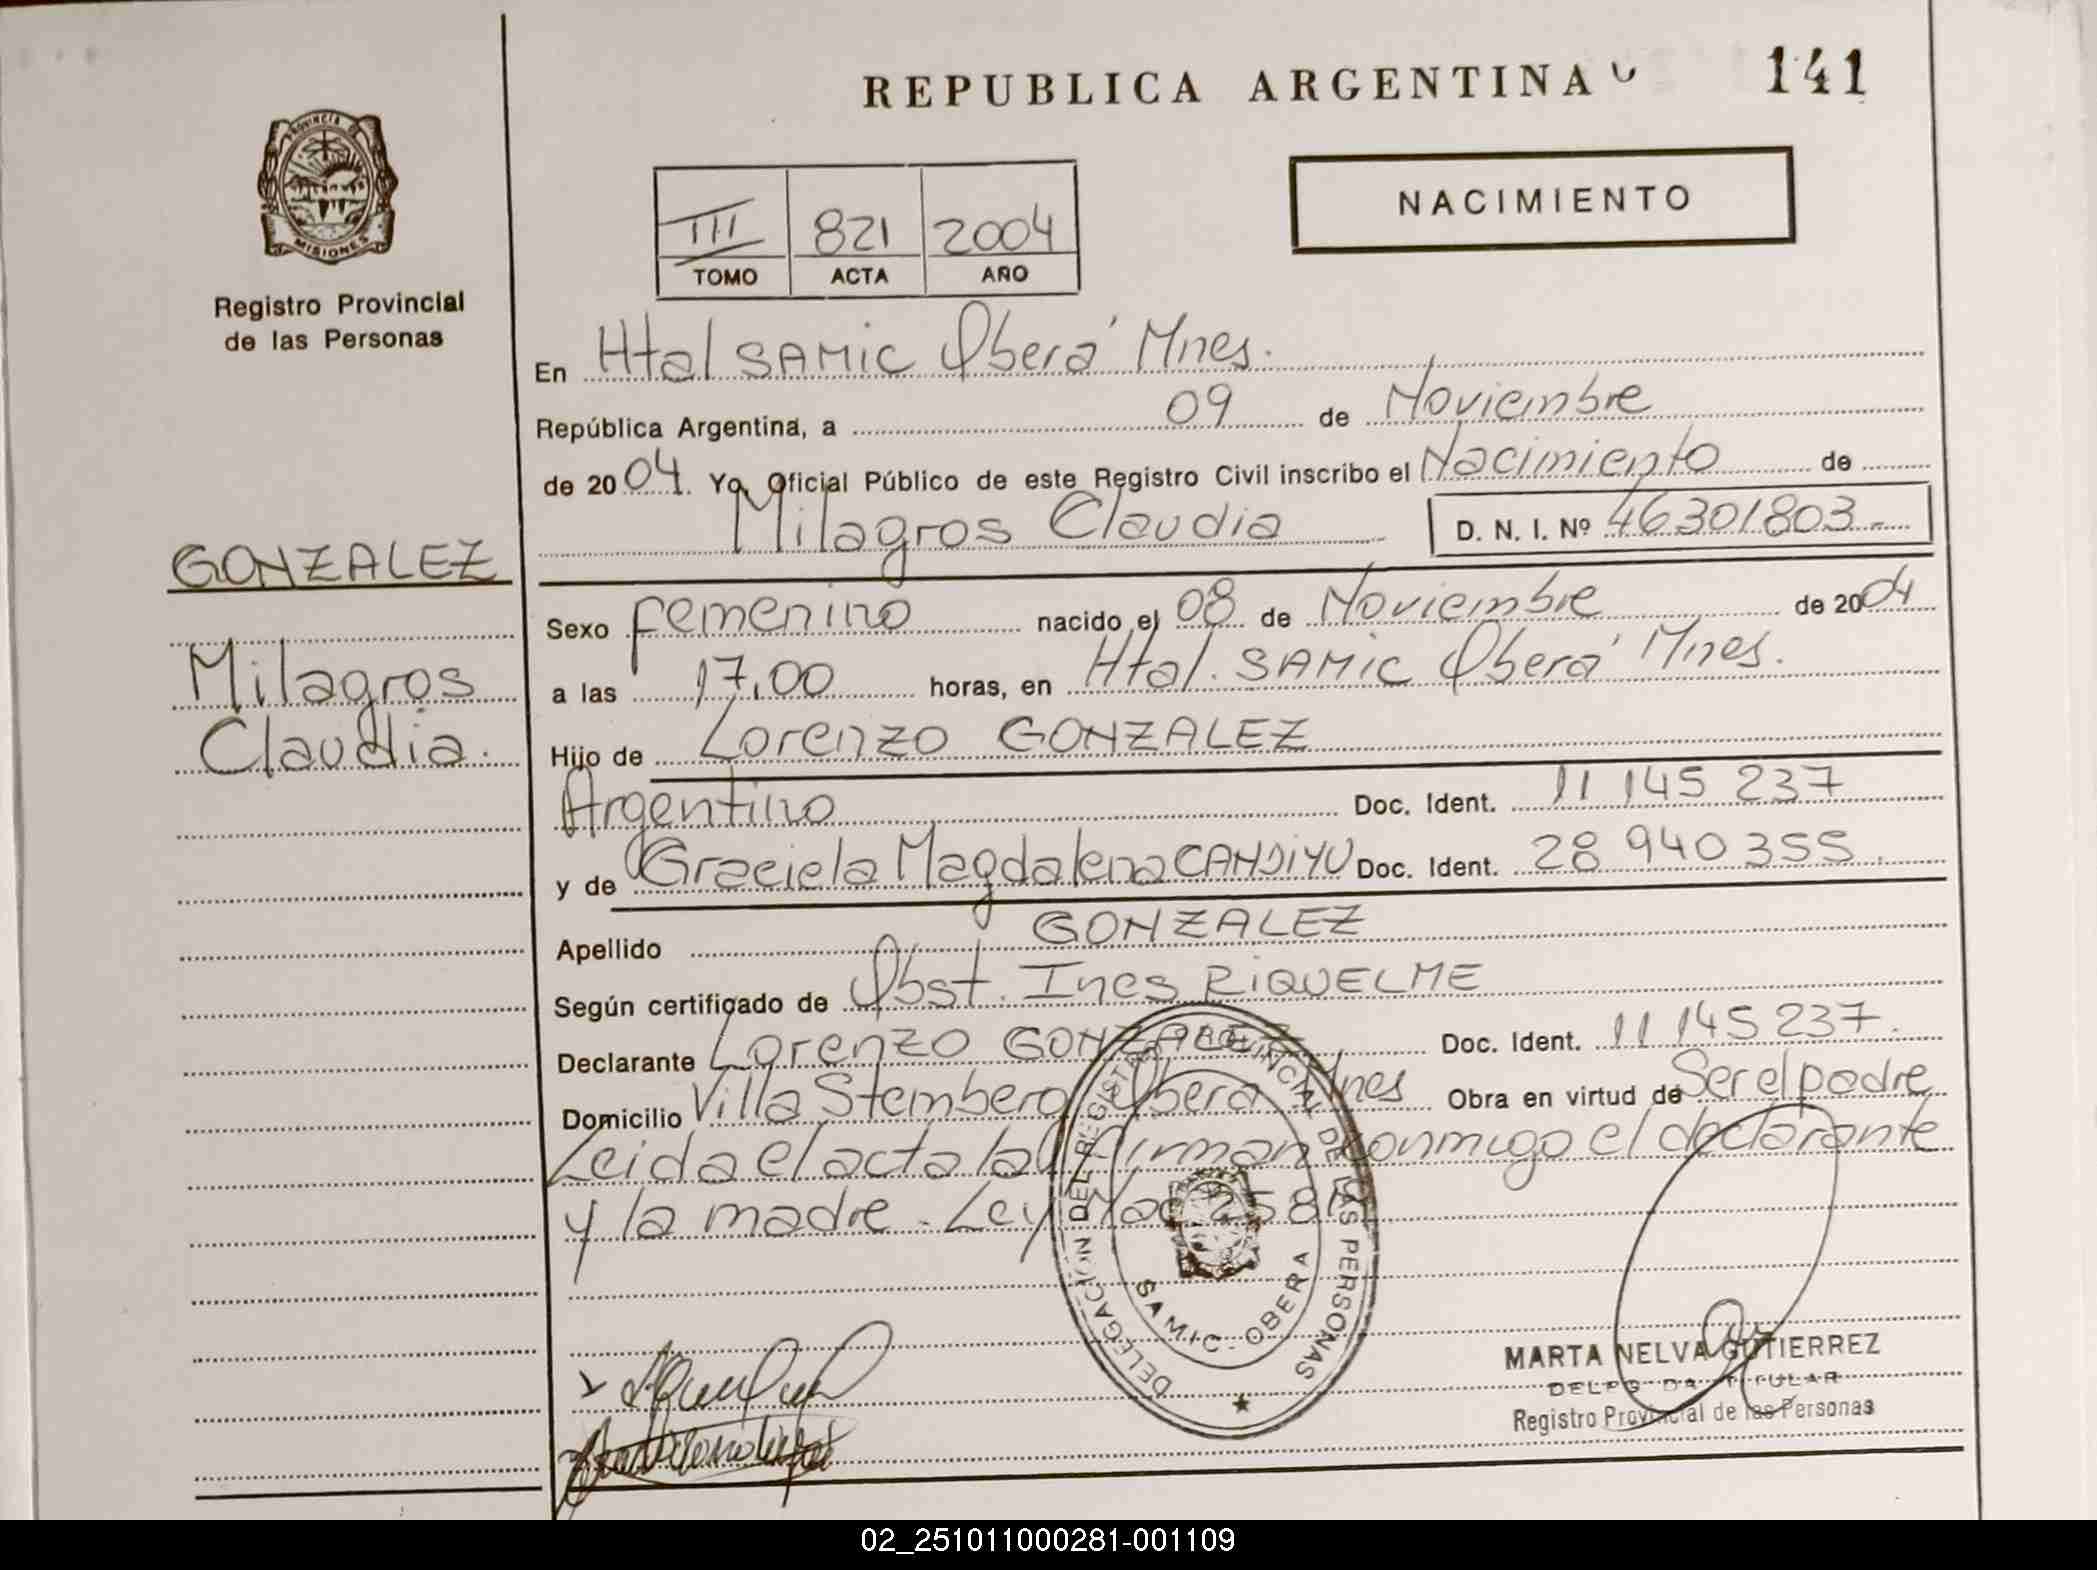 REPUBLICA ARGENTINA 141
PROVINCIA DE
MISIONES
Registro Provincial
de las Personas
NACIMIENTO
III 821 2004
TOMO ACTA AÑO
En Htal SAMIC Oberá Mnes.
República Argentina, a 09 de Noviembre
de 2004. Yo, Oficial Público de este Registro Civil inscribo el Nacimiento de
Milagros Claudia D. N. I. Nº 46301803.-
GONZALEZ
Milagros
Claudia.
Sexo femenino nacido el 08 de Noviembre de 2004
a las 17,00 horas, en Htal. SAMIC Oberá Mnes.
Hijo de Lorenzo GONZALEZ
Argentino Doc. Ident. 11 145 237
y de Graciela Magdalena CANDIYU Doc. Ident. 28 940 355.
Apellido GONZALEZ
Según certificado de Obst. Ines RIQUELME
Declarante Lorenzo GONZALEZ Doc. Ident. 11 145 237.
Domicilio Villa Stemberg Oberá Mnes Obra en virtud de Ser el padre
Leida el acta la firman conmigo el declarante
y la madre. Ley
DELEGACION DEL REGISTRO PROVINCIAL DE LAS PERSONAS
SAMIC - OBERA
MARTA NELVA GUTIERREZ
DELEGADA TITULAR
Registro Provincial de las Personas
02_251011000281-001109